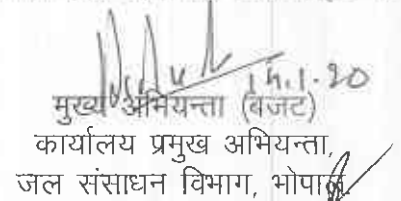 14.1.20
मुख्य अभियन्ता (बजट)
कार्यालय प्रमुख अभियन्ता,
जल संसाधन विभाग, भोपाल